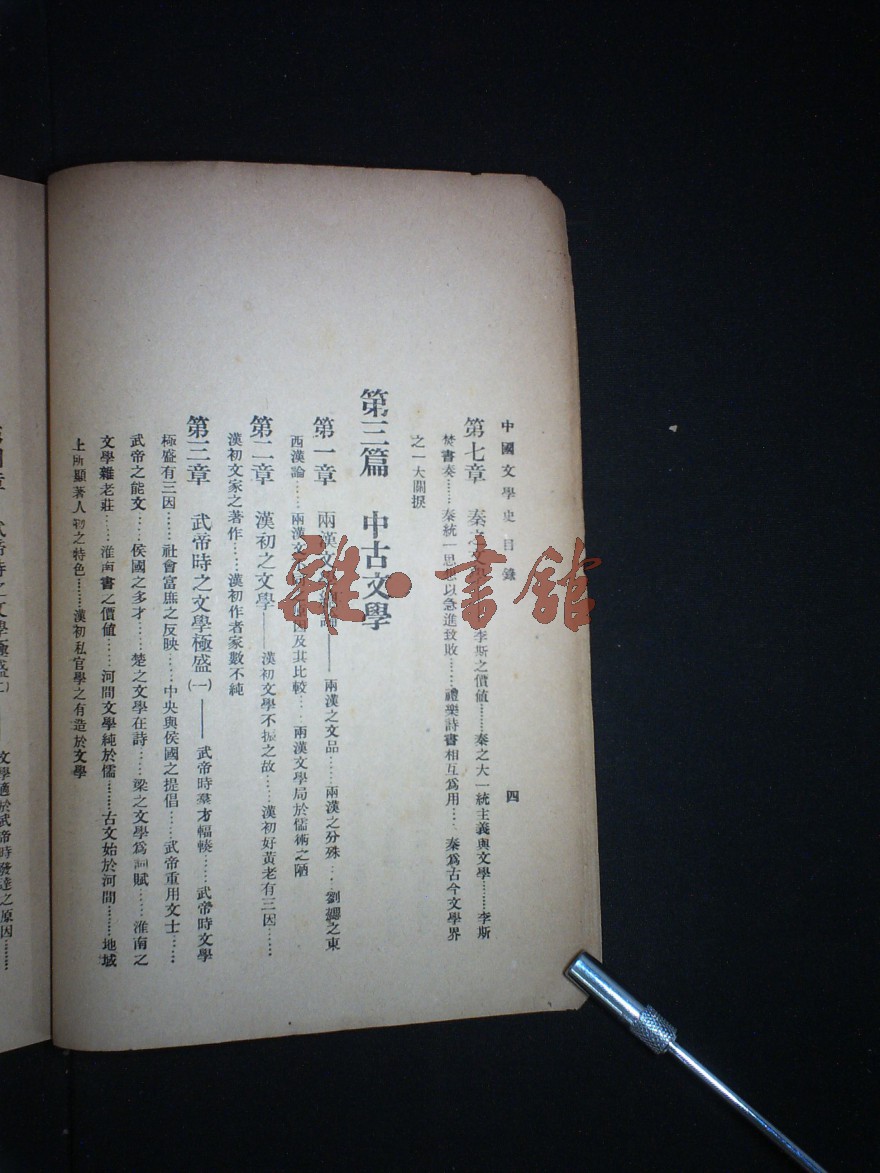 中國文學史目錄
四
第七章 秦之文 李斯之價値……秦之大一統主義與文學……李斯
焚書奏……秦統一思想以急進致敗……禮樂詩書相互爲用……秦爲古今文學界
之一大關捩
第三篇 中古文學
第一章 兩漢文學 論——兩漢之文品……兩漢之分殊……劉勰之東
西漢論……兩漢文 因及其比較……兩漢文學局於儒術之陋
第二章 漢初之文學——漢初文學不振之故……漢初好黃老有三因……
漢初文家之著作……漢初作者家數不純
第三章 武帝時之文學極盛(一)——武帝時羣才幅輳……武帝時文學
極盛有三因……社會富庶之反映……中央與侯國之提倡……武帝重用文士……
武帝之能文……侯國之多才……楚之文學在詩……梁之文學爲詞賦……淮南之
文學雜老莊……淮南書之價値……河間文學純於儒……古文始於河間……地域
上所顯著人物之特色……漢初私官學之有造於文學
武帝時之文學極盛(二)
文學適於武帝時發達之原因……
雜·書館